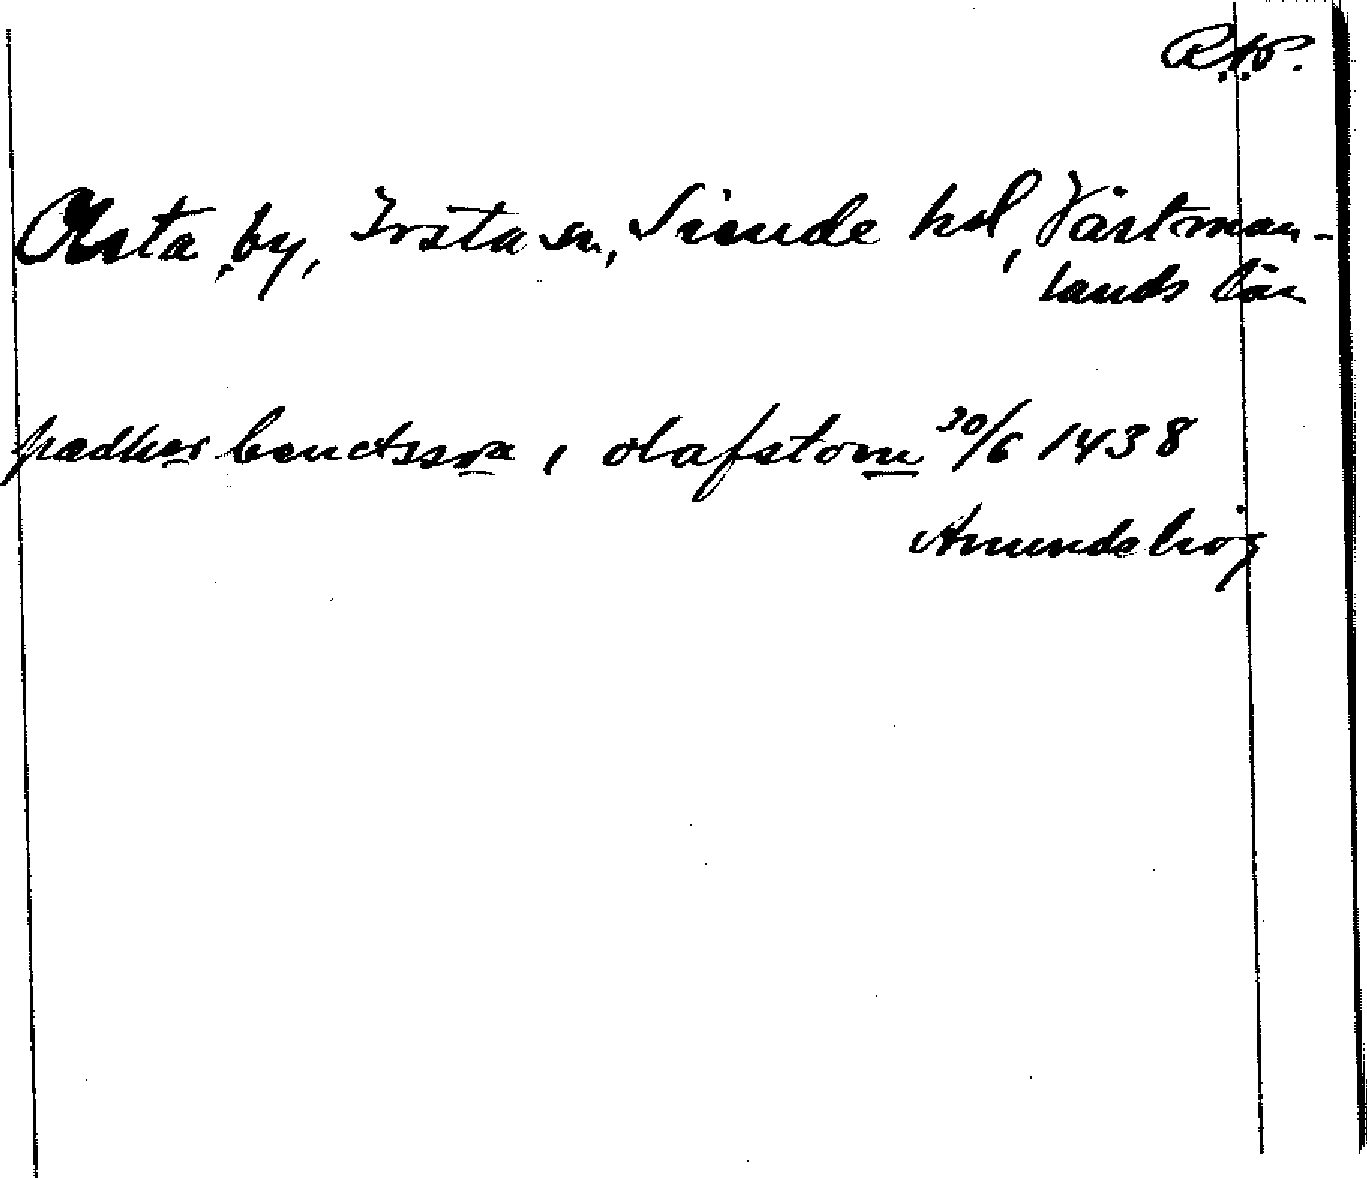 R.A.P.
Olsta by, Irsta sn, Siende hd, Västman-
lands län
padhar benctsson, i olafstomp 30/6 1438
Amundshög